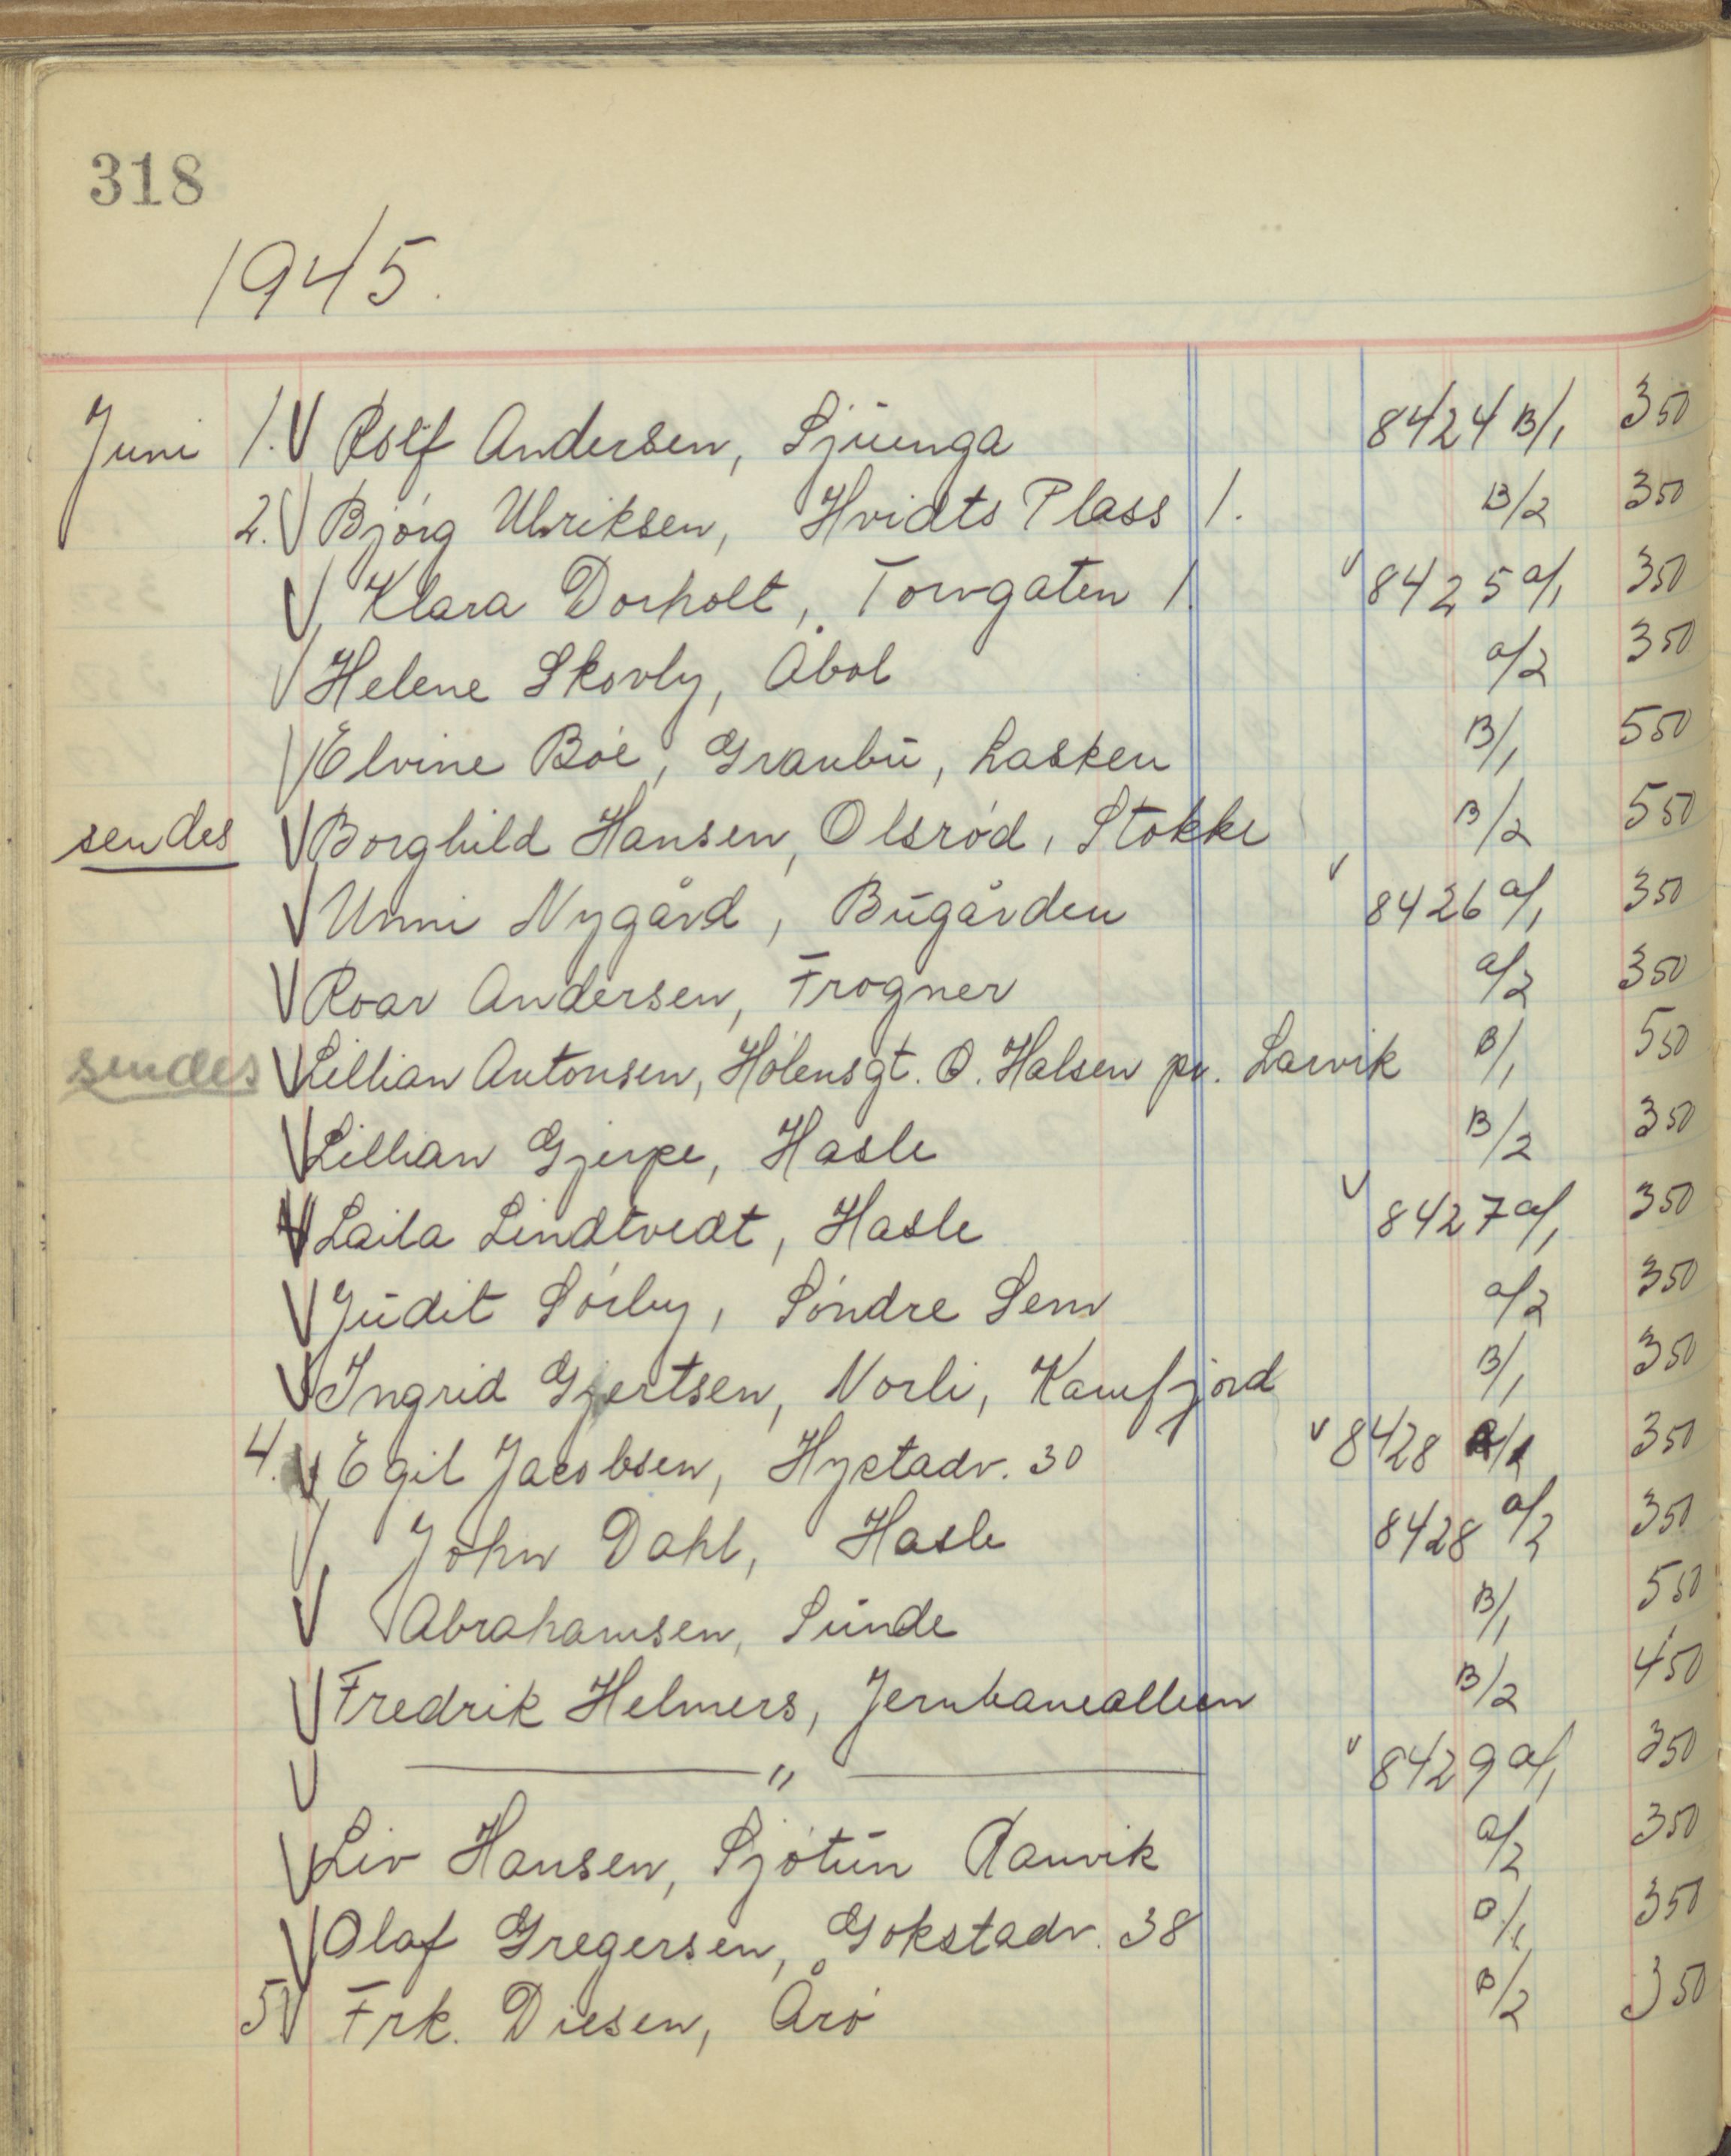 318
1945.
Juni 1. V Rolf Andersen, Sjuenga 8424 B/1 350
2. V Bjørg Ulriksen, Hvidts Plass 1. B/2 350
V Klara Dorholt, Torvgaten 1. v 8425 a/1 350
V Helene Skovly, Åbol a/2 350
V Elvine Bøe, Granbu, Lasken B/1 550
sendes V Borghild Hansen, Olsrød, Stokke B/2 550
V Unni Nygård, Bugården v 8426 a/1 350
V Roar Andersen, Frogner a/2 350
sendes V Lillian Antonsen, Hølensgt. Ø. Halsen pr. Larvik B/1 550
V Lillian Gjerpe, Hasle B/2 350
V Laila Lindtvedt, Hasle v 8427 a/1 350
V Judit Sørby, Søndre Sem a/2 350
V Ingrid Gjertsen, Norli, Kamfjord B/1 350
4. V Egil Jacobsen, Hystadv. 30 v 8428 a/1 350
V John Dahl, Hasle 8428 a/2 350
V Abrahamsen, Sunde B/1 550
V Fredrik Helmers, Jernbanealleen B/2 450
V — " — v 8429 a/1 350
V Liv Hansen, Sjøtun Ranvik a/2 350
V Olaf Gregersen, Gokstadv. 38 B/1 350
5 V Frk. Diesen, Årø B/2 350